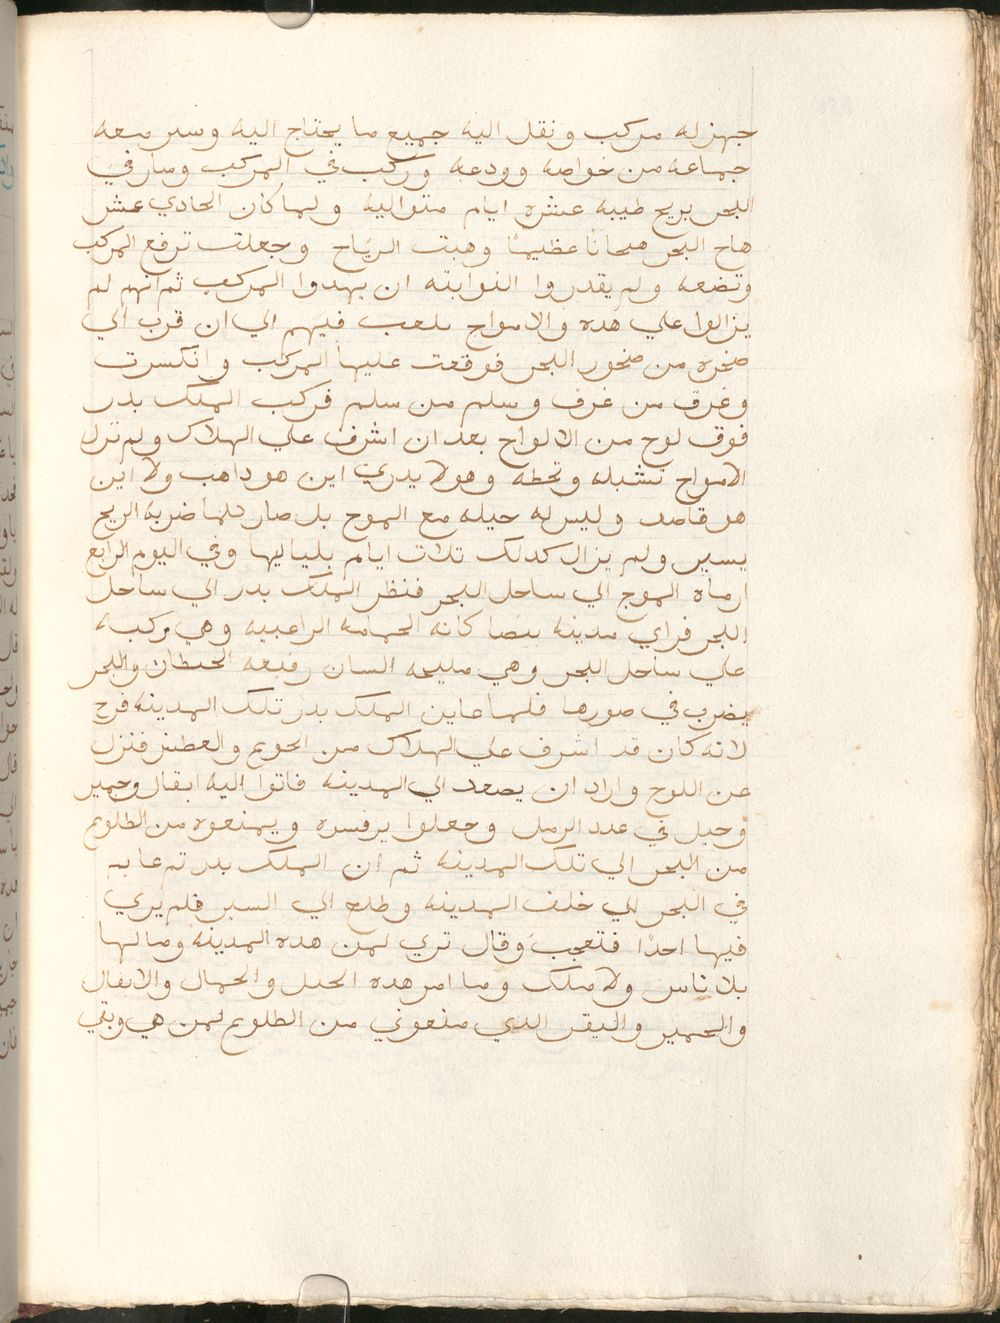 جهز له مركب ونقل اليه جميع ما يحتاج اليه وسير معه
جماعه من خواصه وودعه وركب في المركب وسار في
البحر بريح طيبه عشره ايام متواليه ولما كان الحادي عشر
هاج البحر هيجانًا عظيمًا وهبت الريَاح وجعلت ترفع المركب
وتضعه ولم يقدروا النوابته ان يهدوا المركب ثم انهم لم
يزالوا علي هده والامواج تلعب فيهم الي ان قرب الي
صخره من صخور البحر فوقعت عليها المركب وانكسرت
وغرق من غرق وسلم من سلم فركب الملك بدر
فوق لوح من الالواح بعد ان اشرف علي الهلاك ولم تزل
الامواج تشيله وتحطه وهو لا يدري اين هو داهب ولا اين
هو قاصد وليس له حيله مع الموج بل صار كلما ضربه الريح
يسير ولم يزال كدلك تلات ايام بلياليها وفي اليوم الرابع
ارماه الموج الي ساحل البحر فنظر الملك بدر الي ساحل
البحر فراي مدينه بيضا كانه الحمامه الراعبيه وهي مركبه
علي ساحل البحر وهي مليحه البنيان رفيعه الحيطان والبحر
يضرب في صورها فلما عاين الملك بدر تلك المدينه فرح
لانه كان قد اشرف علي الهلاك من الجوع والعطش فنزل
عن اللوح واراد ان يصعد الي المدينه فاتوا اليه ابغال وحمير
وخيل في عدد الرمل وجعلوا يرفسره ويمنعوه من الطلوع
من البحر الي تلك المدينه ثم ان الملك بدر تم عايم
في البحر الي خلف المدينه وطلع الي البر فلم يري
فيها احدًا فتعجب وقال تري لمن هده المدينه وما لها
بلا ناس ولا ملك وما امر هده الخيل والجمال والابغال
والحمير والبقر الدي منعوني من الطلوع لمن هي وبقي